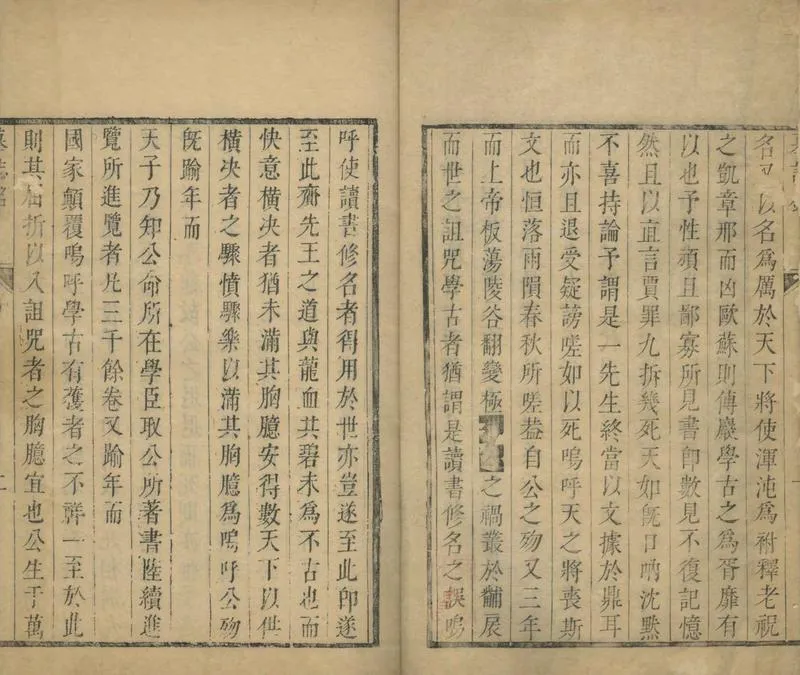 墓誌
名又以名為厲於天下將使渾沌為祔釋老祝
之凱章邪而凶歐蘇則傅巖學古之為胥靡有
以也予性頑且鄙寡所見書卽數見不復記憶
然且以直言賈罪九拆幾死天如旣口吶沈黙
不喜持論予謂是一先生終當以文據於鼎耳
而亦且退受疑謗嗟如以死嗚呼天之將喪斯
文也恒落雨隕春秋所嗟葢自公之歿又三年
而上帝板蕩陵谷翻變極之禍叢於黼扆
而世之詛咒學古者猶謂是讀書修名之誤嗚
呼使讀書修名者得用於世亦豈遂至此卽遂
至此齋先王之道與龍血共碧未為不古也而
快意橫决者猶未滿其胸臆安得數天下以世
橫决者之驟憤驟樂以滿其胸臆為嗚呼公歿
旣踰年而
天子乃知公命所在學臣取公所著書陸續進
覽所進覽者凡三千餘卷又踰年而
國家顛覆嗚呼學古有獲者之不祥一至於此
則其屈折以入詛咒者之胸臆宜也公生于萬
墓誌銘
二